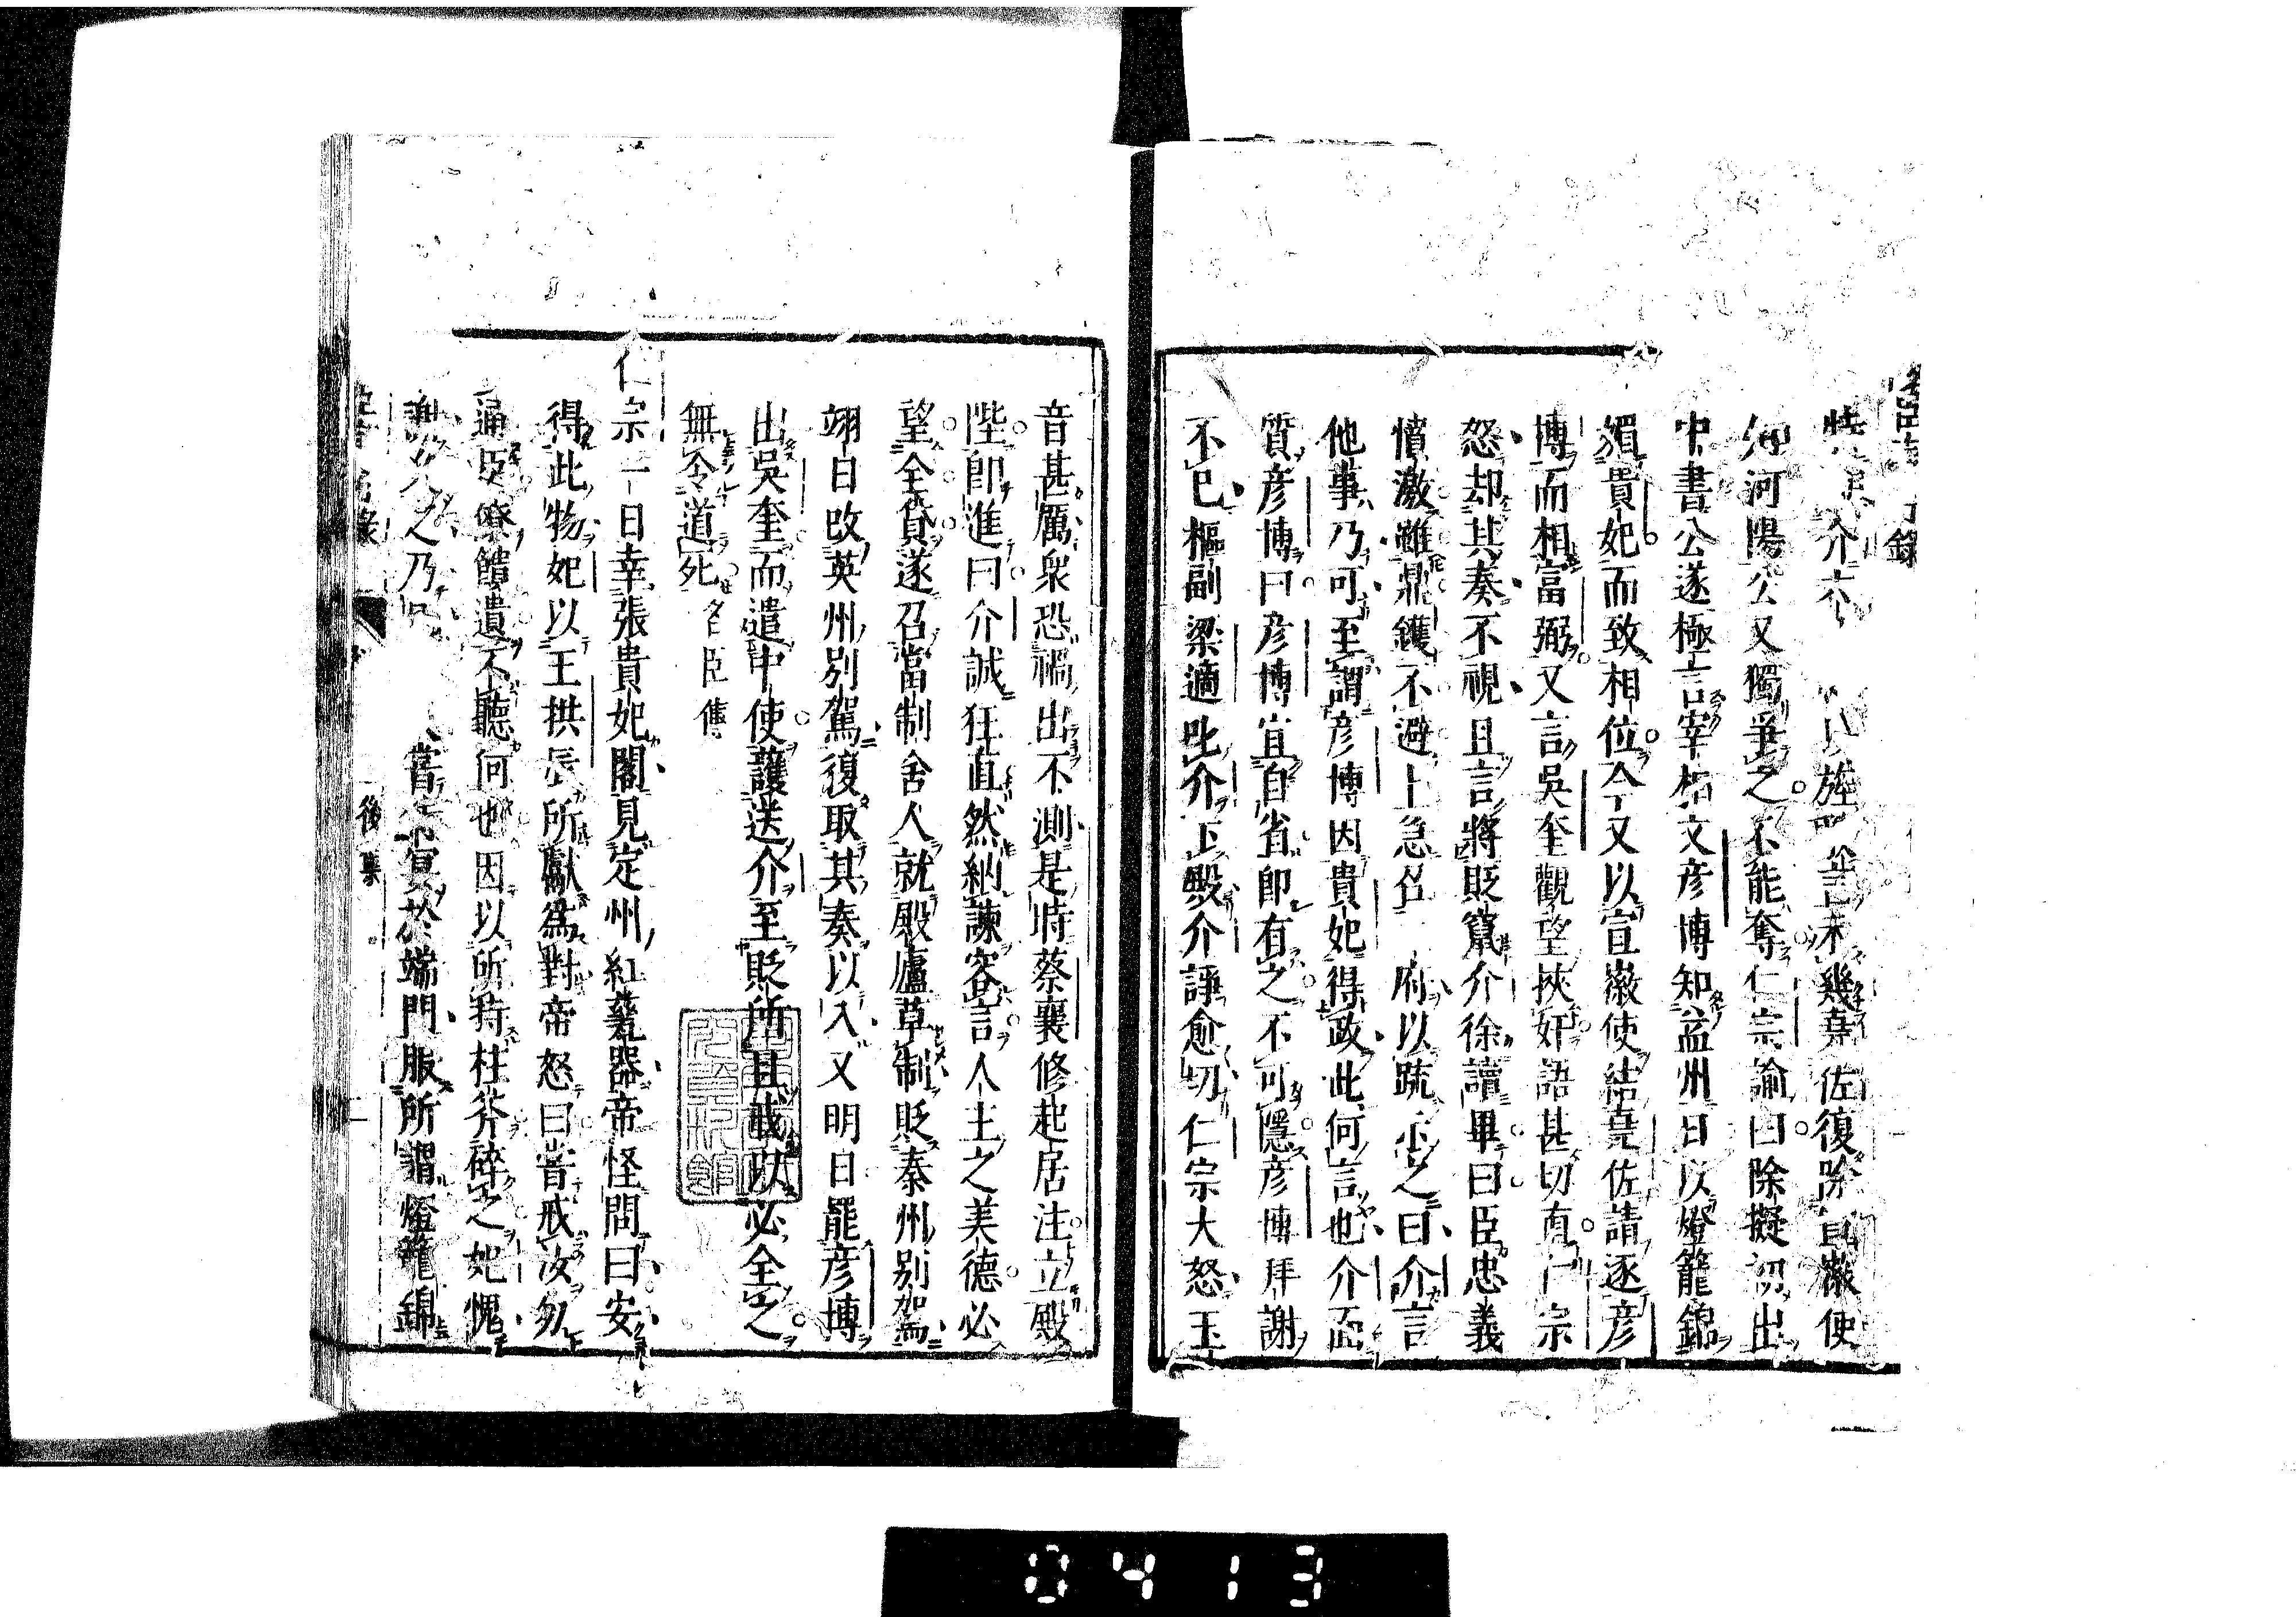 介六
知河陽公又獨爭之不能奪仁宗諭曰除擬初出
中書公遂極言宰相文彦博知益州日以燈籠錦
媚貴妃而致相位今又以宣徽使結堯佐請逐彦
博而相富弼又言吳奎觀望挾奸語甚切直仁宗
怒却其奏不視且言將貶竄介徐讀畢曰臣忠義
憤激雖鼎鑊不避上急召 府以疏示之曰介言
他事乃可至謂彦博因貴妃得政此何言也介面
質彦博曰彦博宜自省即有之不可隱彦博拜謝
不已樞副梁適叱介下殿介諍愈切仁宗大怒玉
音甚厲衆恐禍出不測是時蔡襄修起居注立殿
陛即進曰介誠狂直然納諫容言人主之美德必
望全貸遂召當制舍人就殿廬草制貶秦州別駕
翊日改英州別駕復取其奏以入又明日罷彦博
出吳奎而遣中使護送介至貶所且戒以必全之
無令道死 名臣傳
仁宗一日幸張貴妃閣見定州紅甆器帝怪問曰安
得此物妃以王拱辰所獻為對帝怒曰嘗戒汝勿
通臣僚饋遺不聽何也因以所持柱斧碎之妃愧
謝久之乃 嘗 宴於端門服所謂燈籠錦
後集
0413